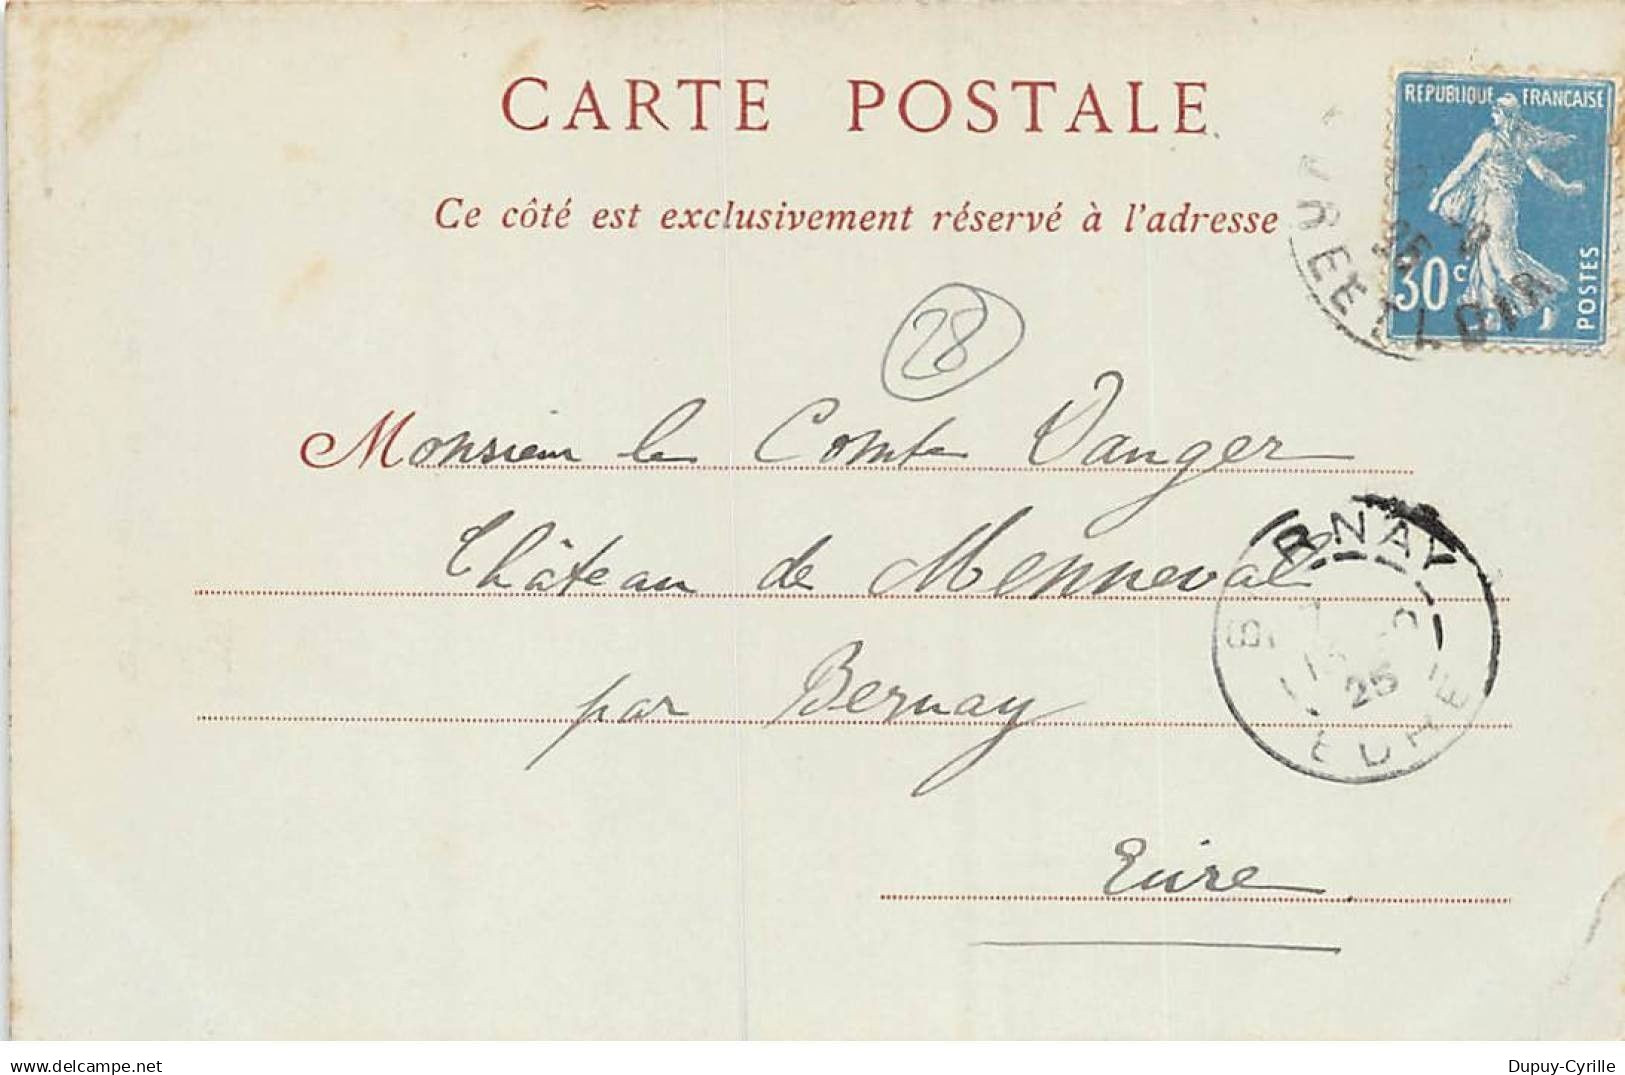 CARTE POSTALE
Ce côté est exclusivement réservé à l'adresse
REPUBLIQUE FRANÇAISE
30c
POSTES
EURE ET LOIR
28
Monsieur le Comte Danger
Château de Menneval
par Bernay
Eure
BERNAY
25
EURE
www.delcampe.net
Dupuy-Cyrille